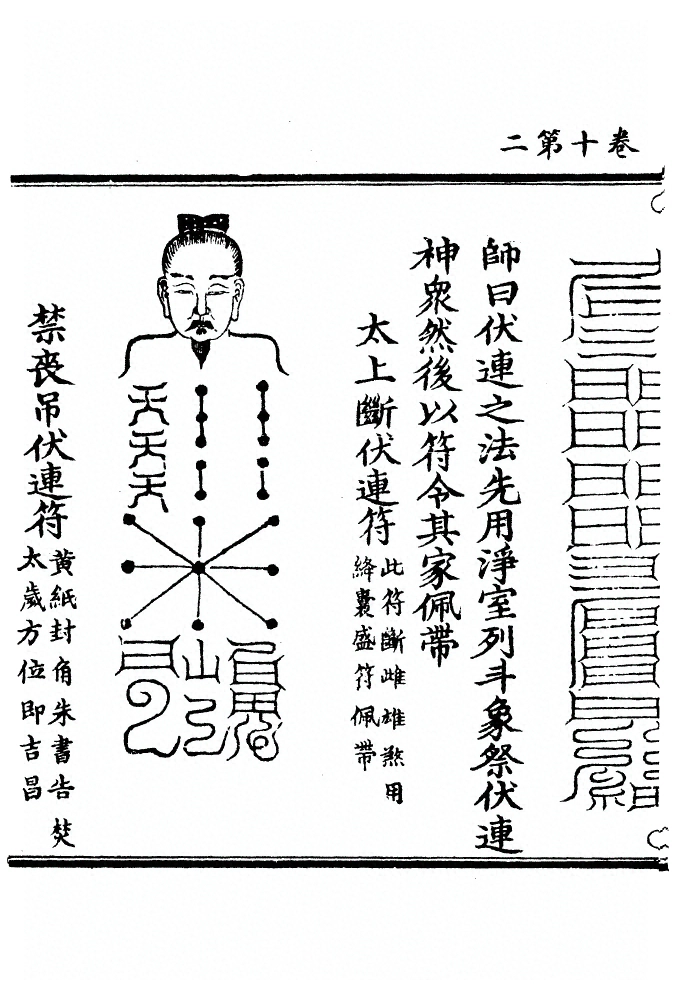 卷十第二
師曰伏連之法先用淨室列斗象祭伏連
神衆然後以符令其家佩帶
太上斷伏連符
此符斷雌雄煞用
絳囊盛符佩帶
禁喪吊伏連符
黃紙封角朱書告焚
太歲方位即吉昌